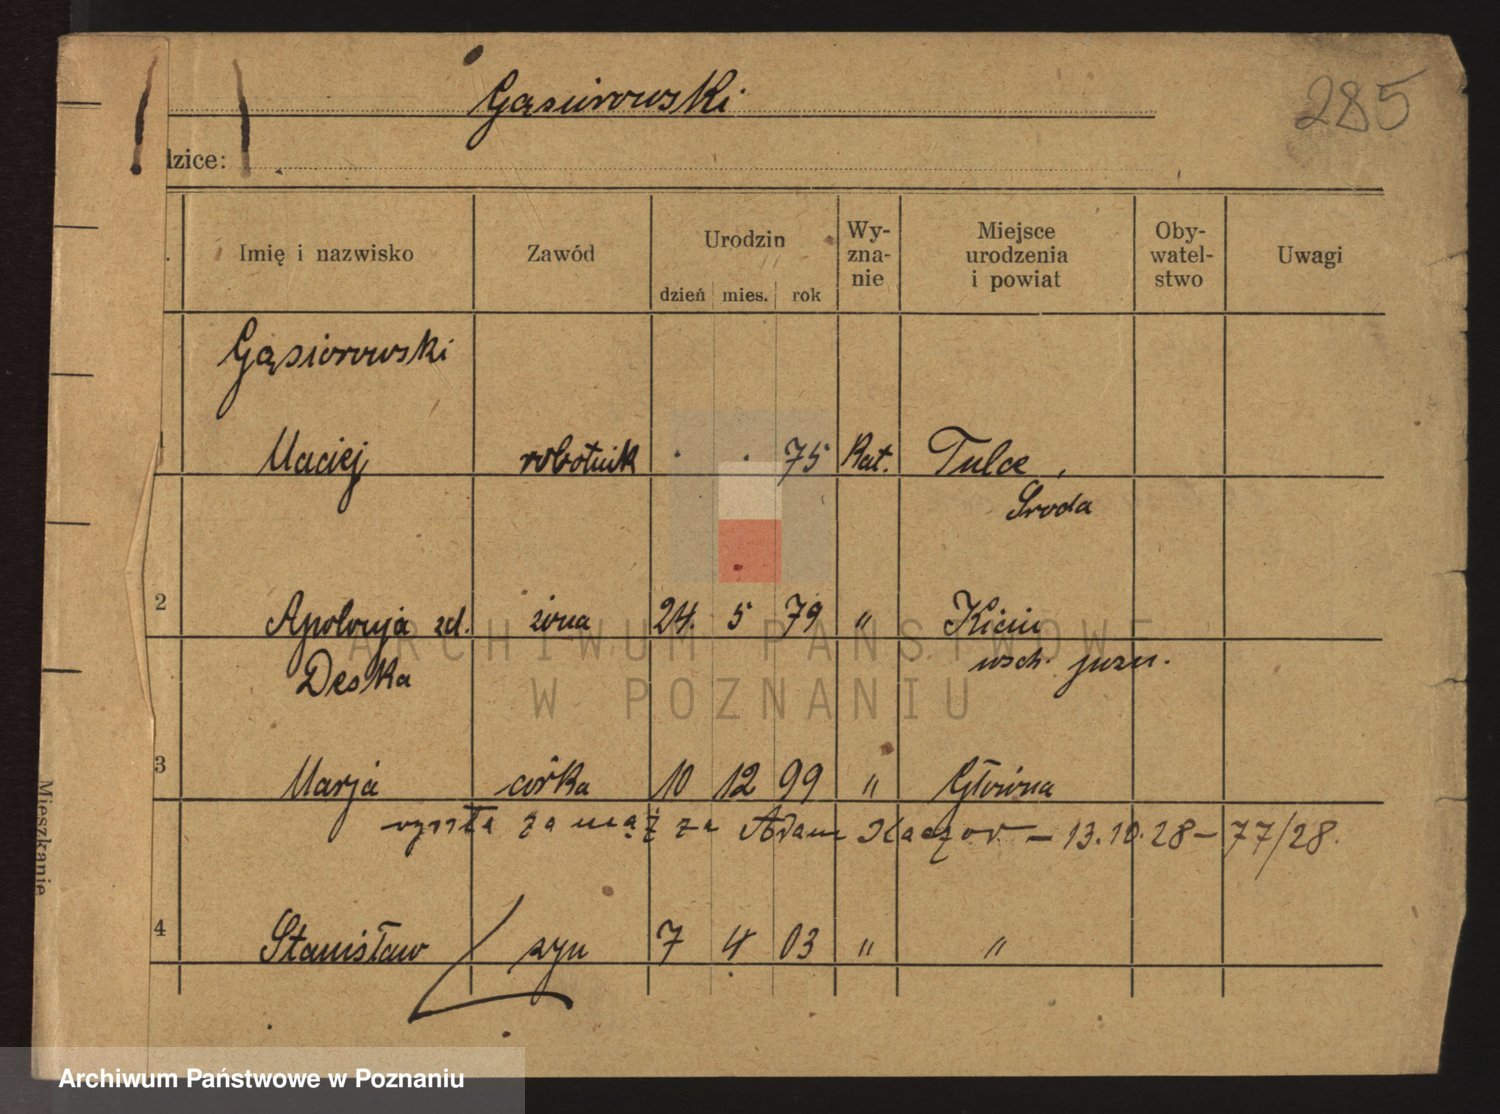 Gąsiorowski
285
dzice:
Imię i nazwisko Zawód Urodzin dzień mies. rok Wy-zna-nie Miejsce urodzenia i powiat Oby-watel-stwo Uwagi
Gąsiorowski
1 Maciej robotnik . . 75 Kat. Tulce,
Sroda
2 Apolonja zd. żona 24. 5 79 " Kicin
Deska wsch. pozn.
3 Marja córka 10 12 99 " Główna
wyszła za mąż za Adam Kaczor - 13.10.28 - 77/28.
4 Stanisław syn 7 4 03 " "
Mieszkanie
ARCHIWUM PAŃSTWOWE
W POZNANIU
Archiwum Państwowe w Poznaniu